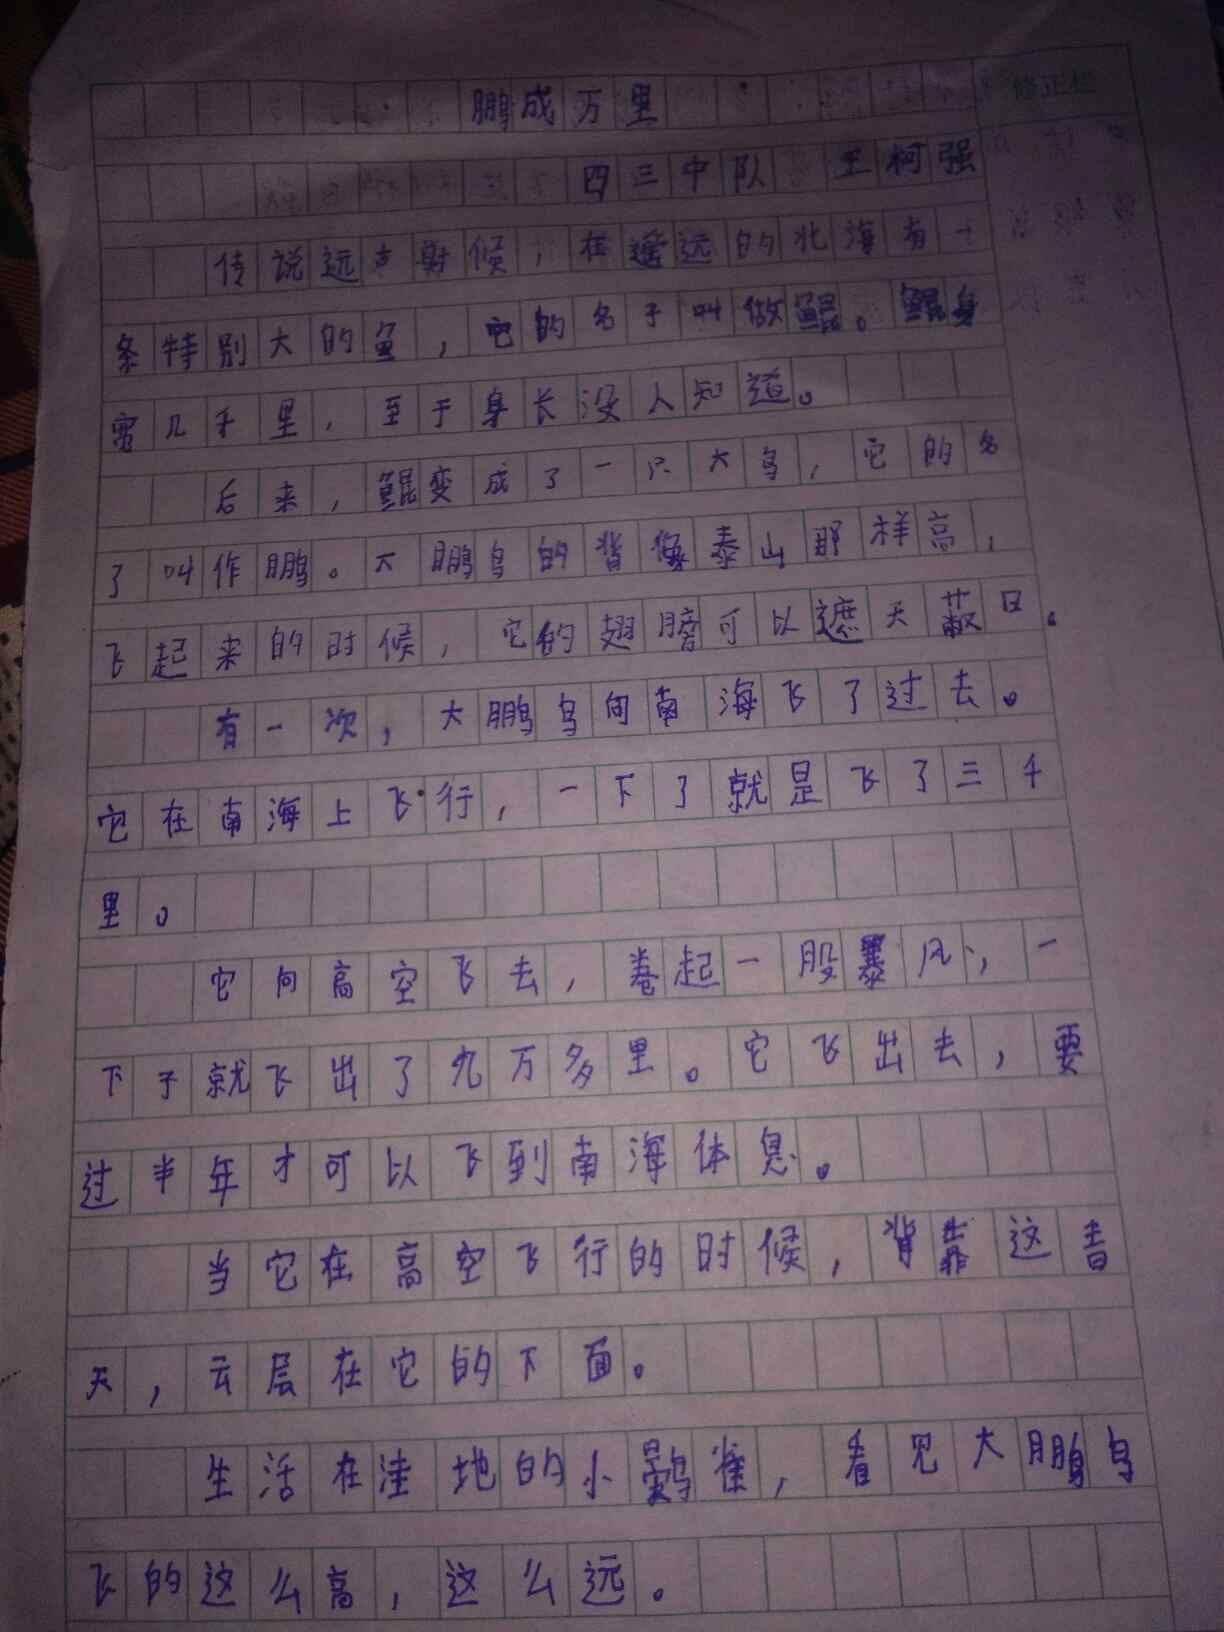 鹏成万里
修正栏
四三中队 王柯强
传说远古时候，在遥远的北海有一
条特别大的鱼，它的名子叫做鲲。鲲身
宽几千里，至于身长没人知道。
后来，鲲变成了一只大鸟，它的名
了叫作鹏。大鹏鸟的背像泰山那样高，
飞起来的时候，它的翅膀可以遮天蔽日。
有一次，大鹏鸟向南海飞了过去。
它在南海上飞行，一下了就是飞了三千
里。
它向高空飞去，卷起一股暴风，一
下子就飞出了九万多里。它飞出去，要
过半年才可以飞到南海体息。
当它在高空飞行的时候，背靠这青
天，云层在它的下面。
生活在洼地的小鹌雀，看见大鹏鸟
飞的这么高，这么远。